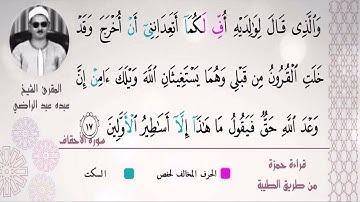 وَالَّذِى قَالَ لِوَٰلِدَيْهِ أُفِّ لَكُمَآ أَتَعِدَانِنِىٓ أَنْ أُخْرَجَ وَقَدْ
خَلَتِ ٱلْقُرُونُ مِن قَبْلِى وَهُمَا يَسْتَغِيثَانِ ٱللَّهَ وَيْلَكَ ءَامِنْ إِنَّ
وَعْدَ ٱللَّهِ حَقٌّ فَيَقُولُ مَا هَٰذَآ إِلَّآ أَسَٰطِيرُ ٱلْأَوَّلِينَ ١٧
القارئ الشيخ
عبده عبد الراضي
سورة الأحقاف
قراءة حمزة
من طريق الطيبة
الحرف المخالف لحفص
السكت